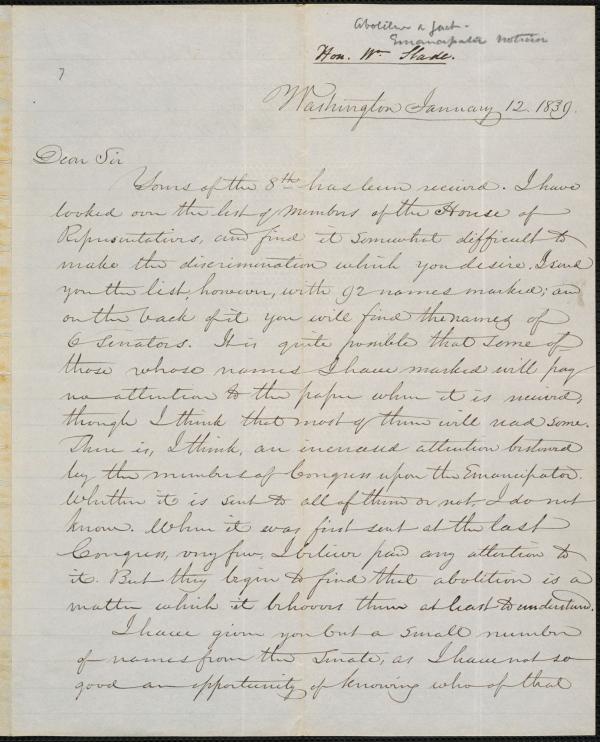 Abolition a fact -
Emancipator notices
Hon. Wm Slade.
7
Washington January 12. 1839.
Dear Sir
Yours of the 8th has been received. I have
looked over the list of members of the House of
Representatives, and find it somewhat difficult to
make the discrimination which you desire. I send
you the list, however, with 92 names marked; and
on the back of it you will find the names of
6 Senators. It is quite possible that some of
those whose names I have marked will pay
no attention to the paper when it is received,
though I think that most of them will read some.
There is, I think, an increased attention bestowed
by the members of Congress upon the Emancipator.
Whether it is sent to all of them or not, I do not
know. When it was first sent at the last
Congress, very few, I believe paid any attention to
it. But they begin to find that abolition is a
matter which it behooves them at least to understand.
I have given you but a small number
of names from the Senate, as I have not so
good an opportunity of knowing who of that